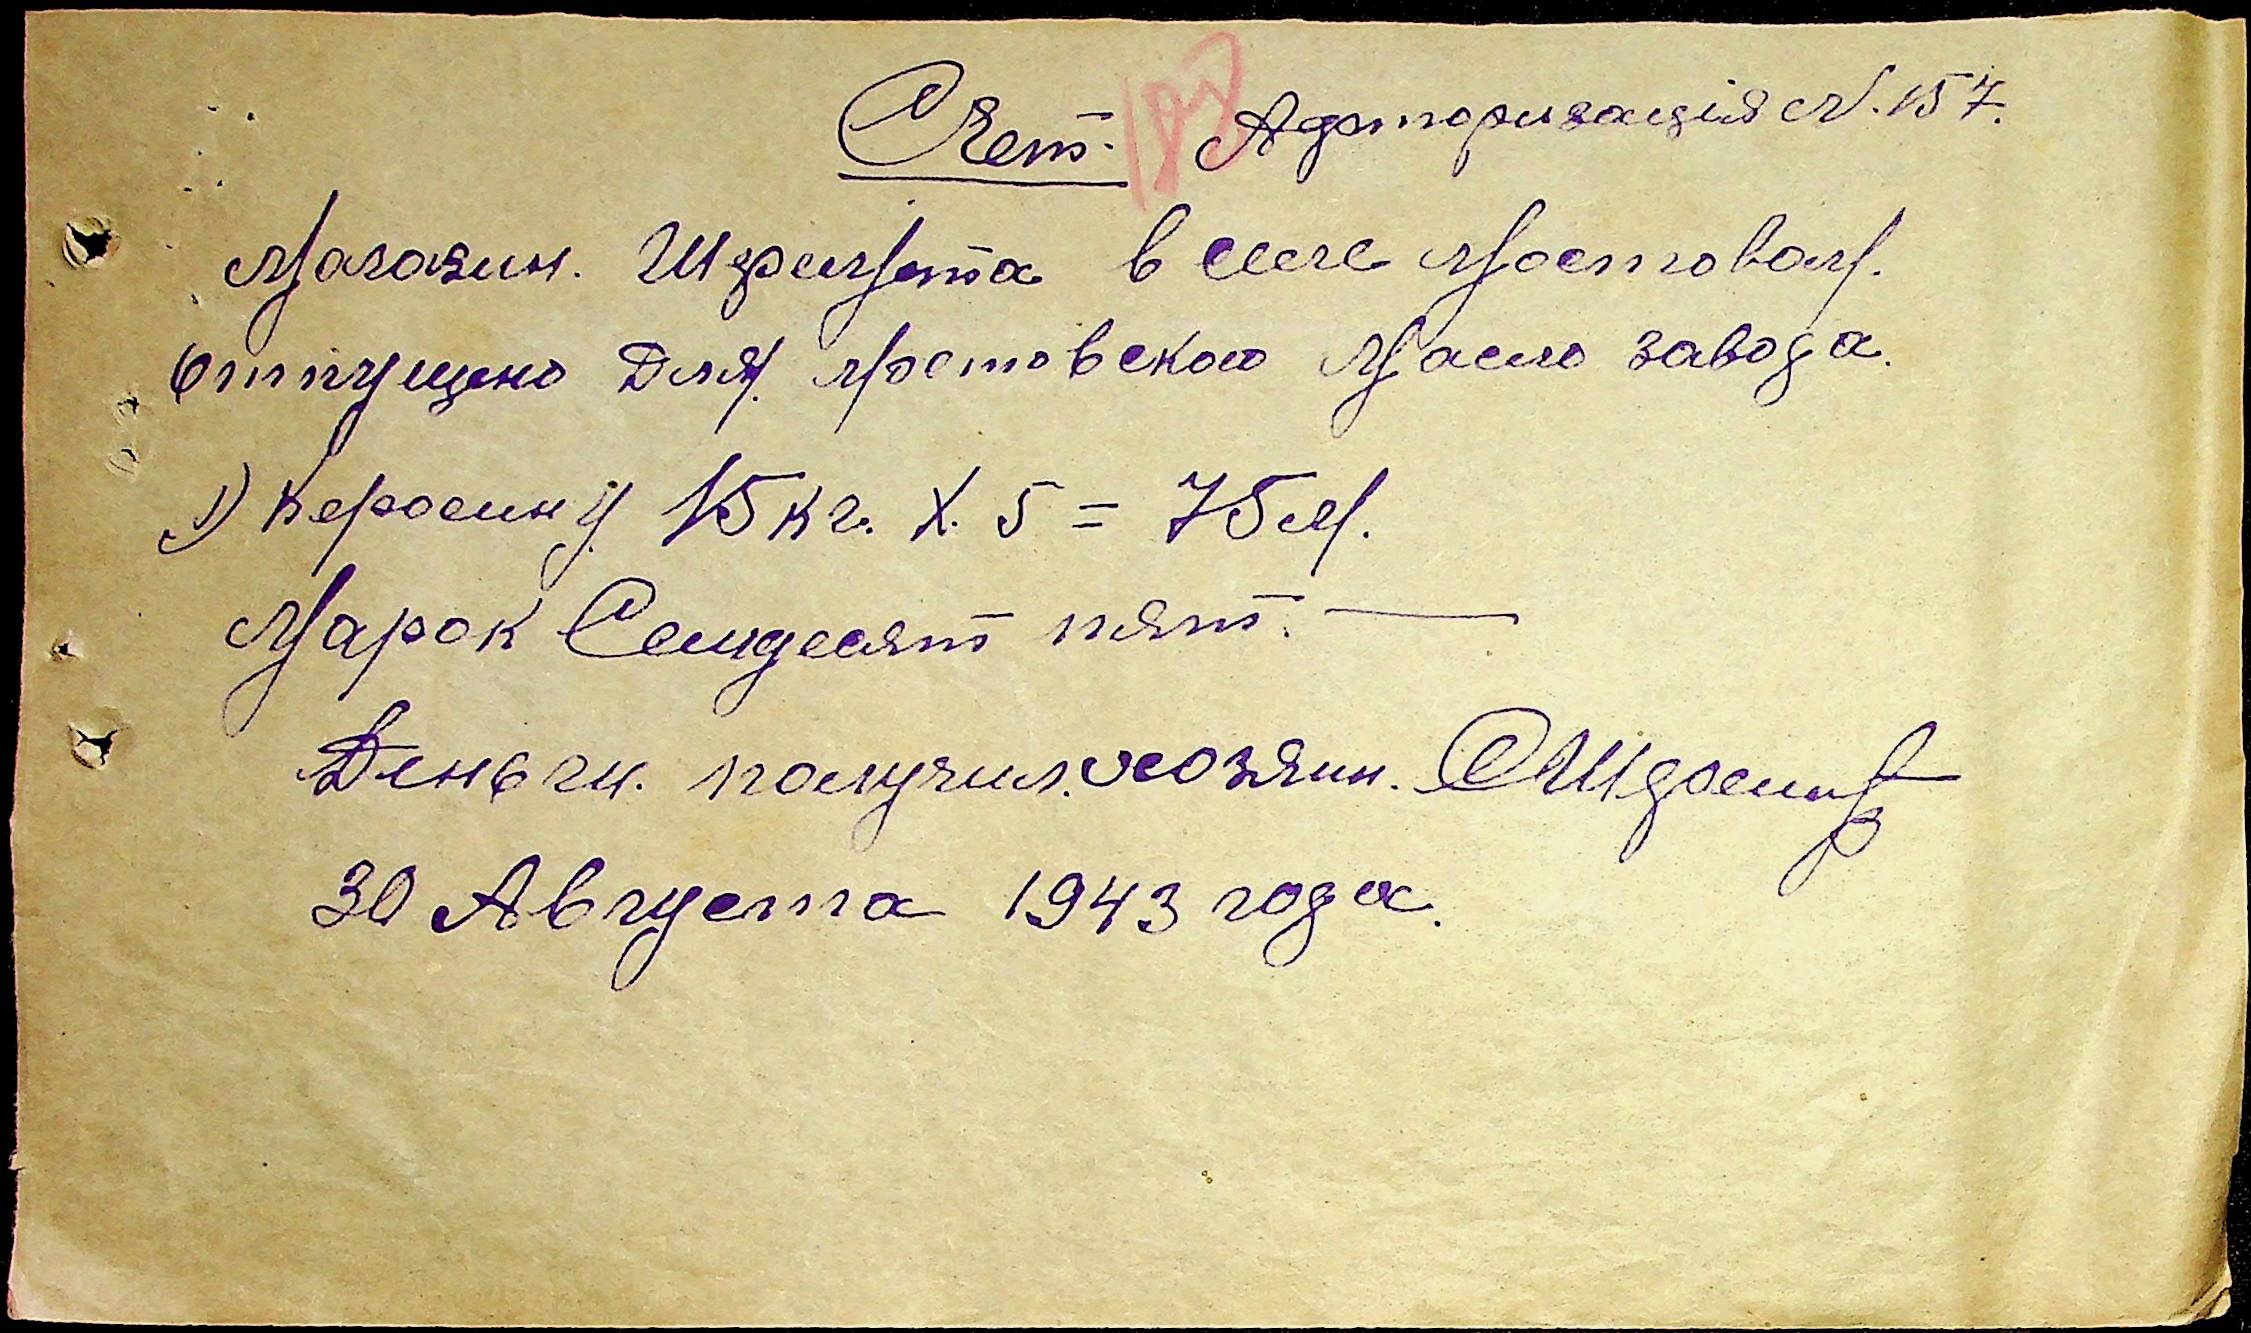 Счет. Адтторизація N. 157.
187
Магазин. Шфимета в селе Мостовам.
Отпущено Для. Мостовского Масло завода.
1) Керосину 15 кг. X. 5 = 75 м.
Марок Семдесят пят. —
Деньги. получил. хозяин.
30 Августа 1943 года.